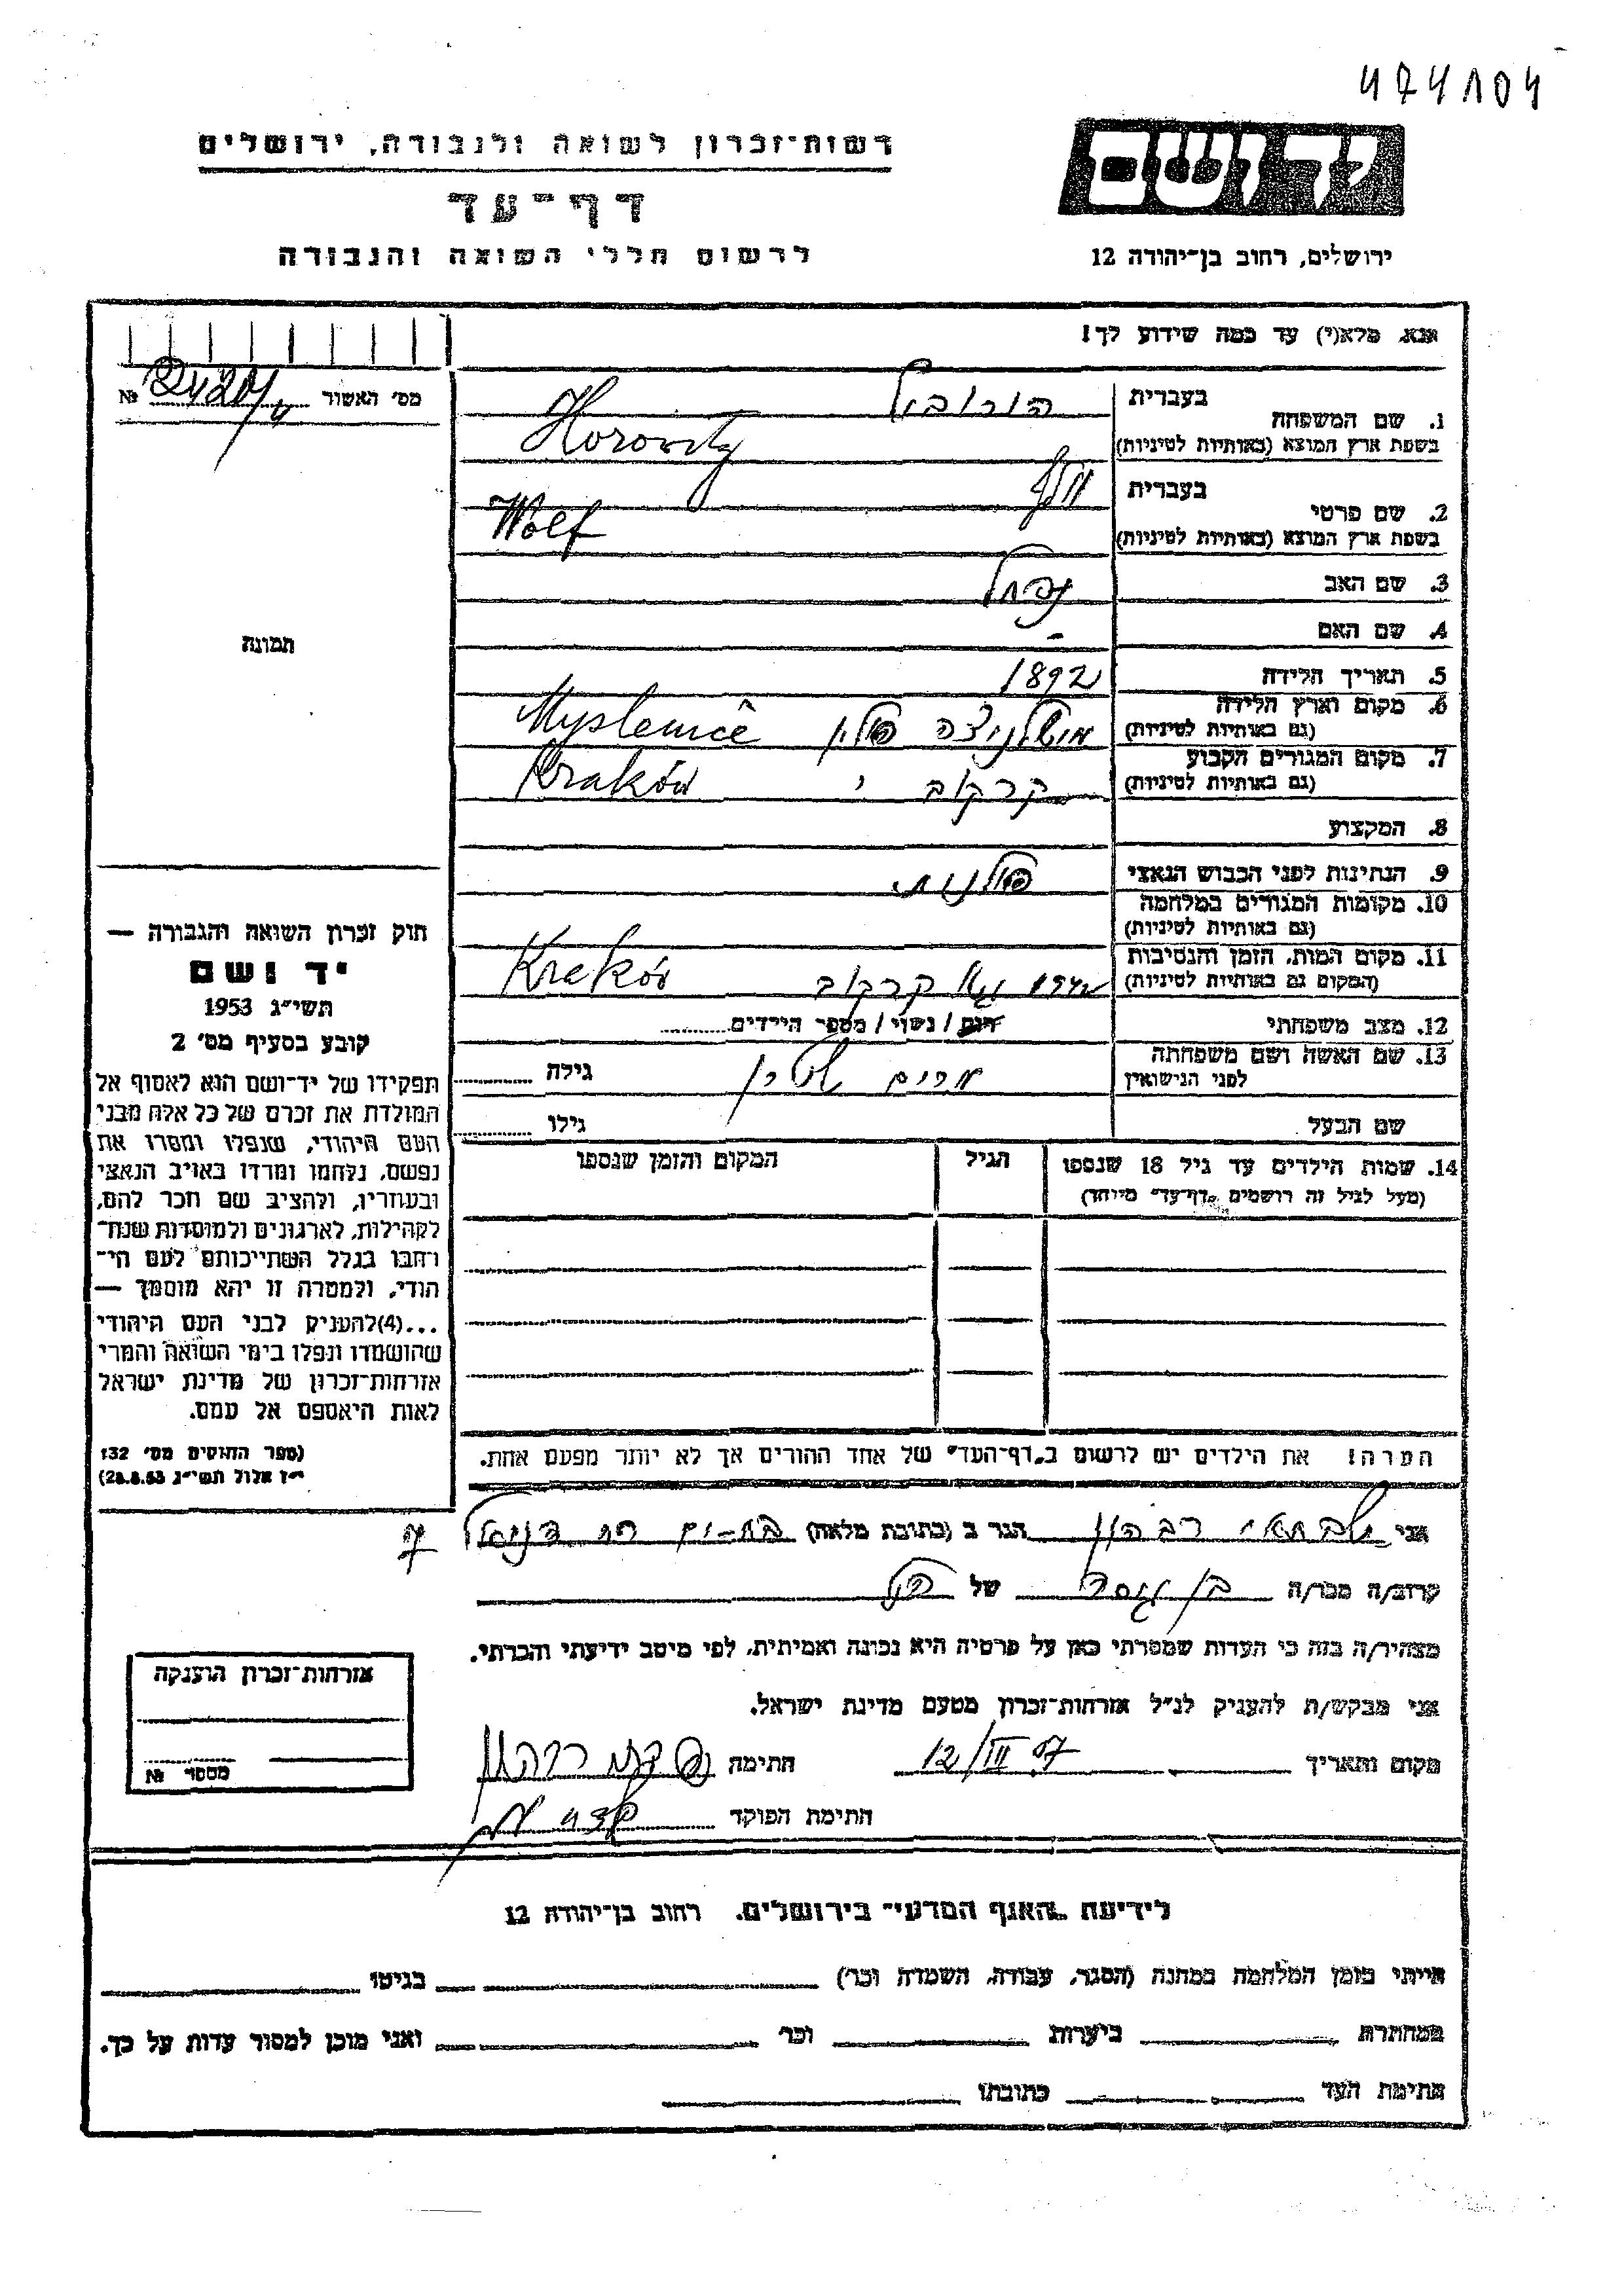 474104
רשות-זכרון לשואה ולגבורה, ירושלים
יד ושם
דף-עד
לרשום חללי השואה והגבורה
ירושלים, רחוב בן-יהודה 12
אנא, מלא(י) עד כמה שידוע לך!
מס' האשור №
1. שם המשפחה
בעברית הורוביץ
בשפת ארץ המוצא (באותיות לטיניות) Horovitz
2. שם פרטי
בעברית וולף
בשפת ארץ המוצא (באותיות לטיניות) Wolf
3. שם האב
4. שם האם -
5. תאריך הלידה 1892
6. מקום וארץ הלידה מישלניצה פולין Myslenice
(גם באותיות לטיניות)
7. מקום המגורים הקבוע קרקוב Kraków
(גם באותיות לטיניות)
8. המקצוע
9. הנתינות לפני הכבוש הנאצי פולנית
10. מקומות המגורים במלחמה
(גם באותיות לטיניות)
11. מקום המות, הזמן והנסיבות קרקוב Kraków
(המקום גם באותיות לטיניות)
12. מצב משפחתי רווק / נשוי / מספר הילדים
13. שם האשה ושם משפחתה מרים גילה
לפני הנישואין
שם הבעל גילו
14. שמות הילדים עד גיל 18 שנספו הגיל המקום והזמן שנספו
(מעל לגיל זה רושמים "דף-עד" מיוחד)
הערה! את הילדים יש לרשום ב"דף-העד" של אחד ההורים אך לא יותר מפעם אחת.
תמונה
חוק זכרון השואה והגבורה —
יד ושם
תשי"ג 1953
קובע בסעיף מס' 2
תפקידו של יד-ושם הוא לאסוף אל
המולדת את זכרם של כל אלה מבני
העם היהודי, שנפלו ומסרו את
נפשם, נלחמו ומרדו באויב הנאצי
ובעוזריו, ולהציב שם וזכר להם,
לקהילות, לארגונים ולמוסדות שנח-
רבו בגלל השתייכותם לעם הי-
הודי, ולמטרה זו יהא מוסמך —
...(4) להעניק לבני העם היהודי
שהושמדו ונפלו בימי השואה והמרי
אזרחות-זכרון של מדינת ישראל
לאות היאספם אל עמם.
(ספר החוקים מס' 132
י"ז אלול תשי"ג 28.8.53)
אני הגר ב (כתובת מלאה) בת-ים 7
קרוב/ה מכר/ה של
מצהיר/ה בזה כי העדות שמסרתי כאן על פרטיה היא נכונה ואמיתית, לפי מיטב ידיעתי והכרתי.
אני מבקש/ת להעניק לנ"ל אזרחות-זכרון מטעם מדינת ישראל.
מקום ותאריך 12/III 57 חתימה
חתימת הפוקד
אזרחות-זכרון הוענקה
מספר №
לידיעת "האגף המדעי" בירושלים, רחוב בן-יהודה 12
הייתי בזמן המלחמה במחנה (הסגר, עבודה, השמדה וכו') בגיטו
במחתרת ביערות וכו' ואני מוכן למסור עדות על כך.
חתימת העד כתובתו